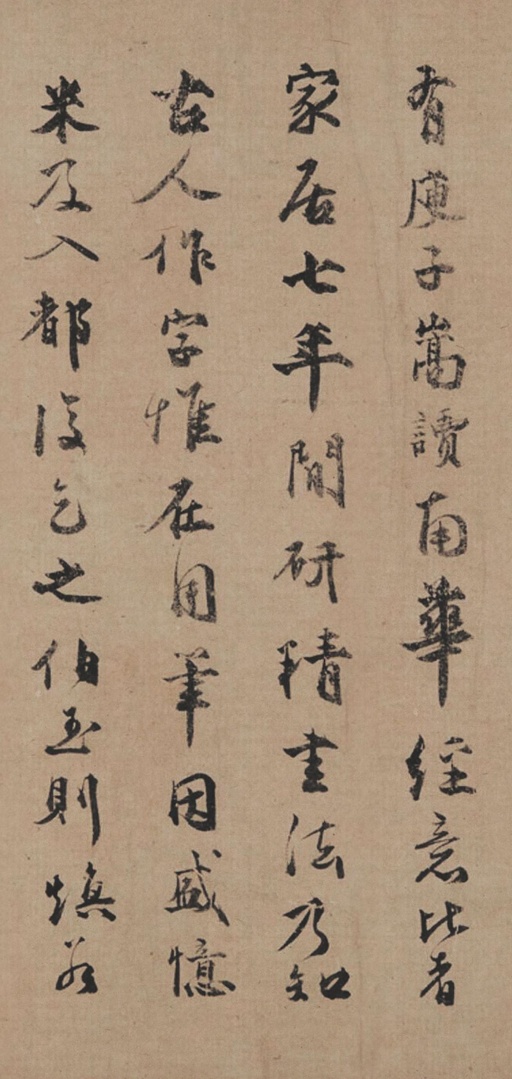 有庾子嵩讀南華經意比者
家居七年間研精書法乃知
古人作字惟在用筆因盛憶
米及入都後乞之伯玉則慎若